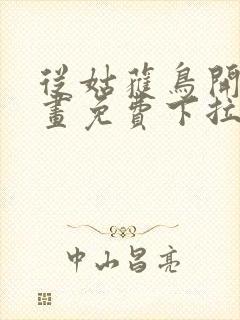 從姑蘿鳥開
畫免費下拉
中山昌亮